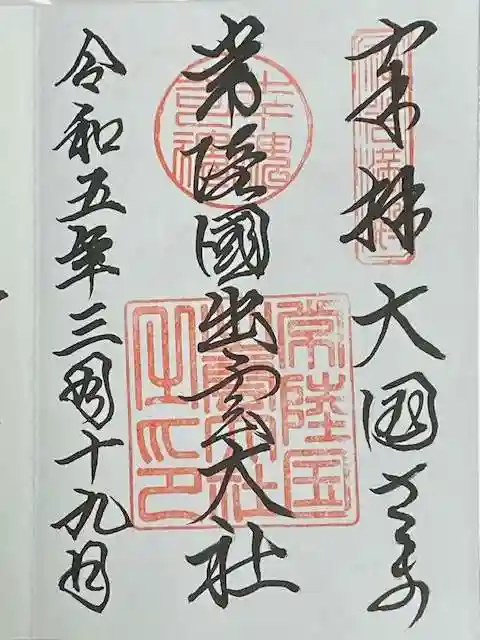 奉拝 大国さま
常陸國出雲大社
常陸国出雲大社之印
令和五年三月十九日